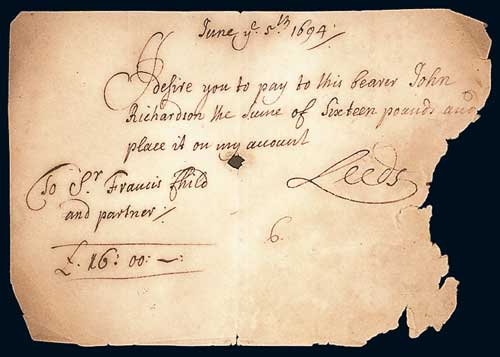 June yᵉ 5ᵗʰ 1694/
I desire you to pay to this bearer John
Richardson the Sume of Sixteen pounds and
place it on my account
Leeds
To Sʳ Francis Child
and partner/
6.
£. 16: 00: —: